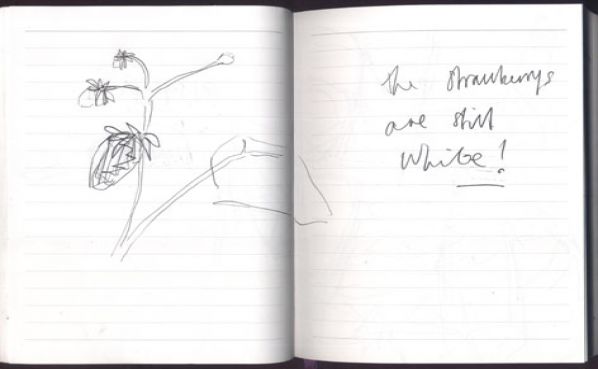 the strawburys
are still
white!